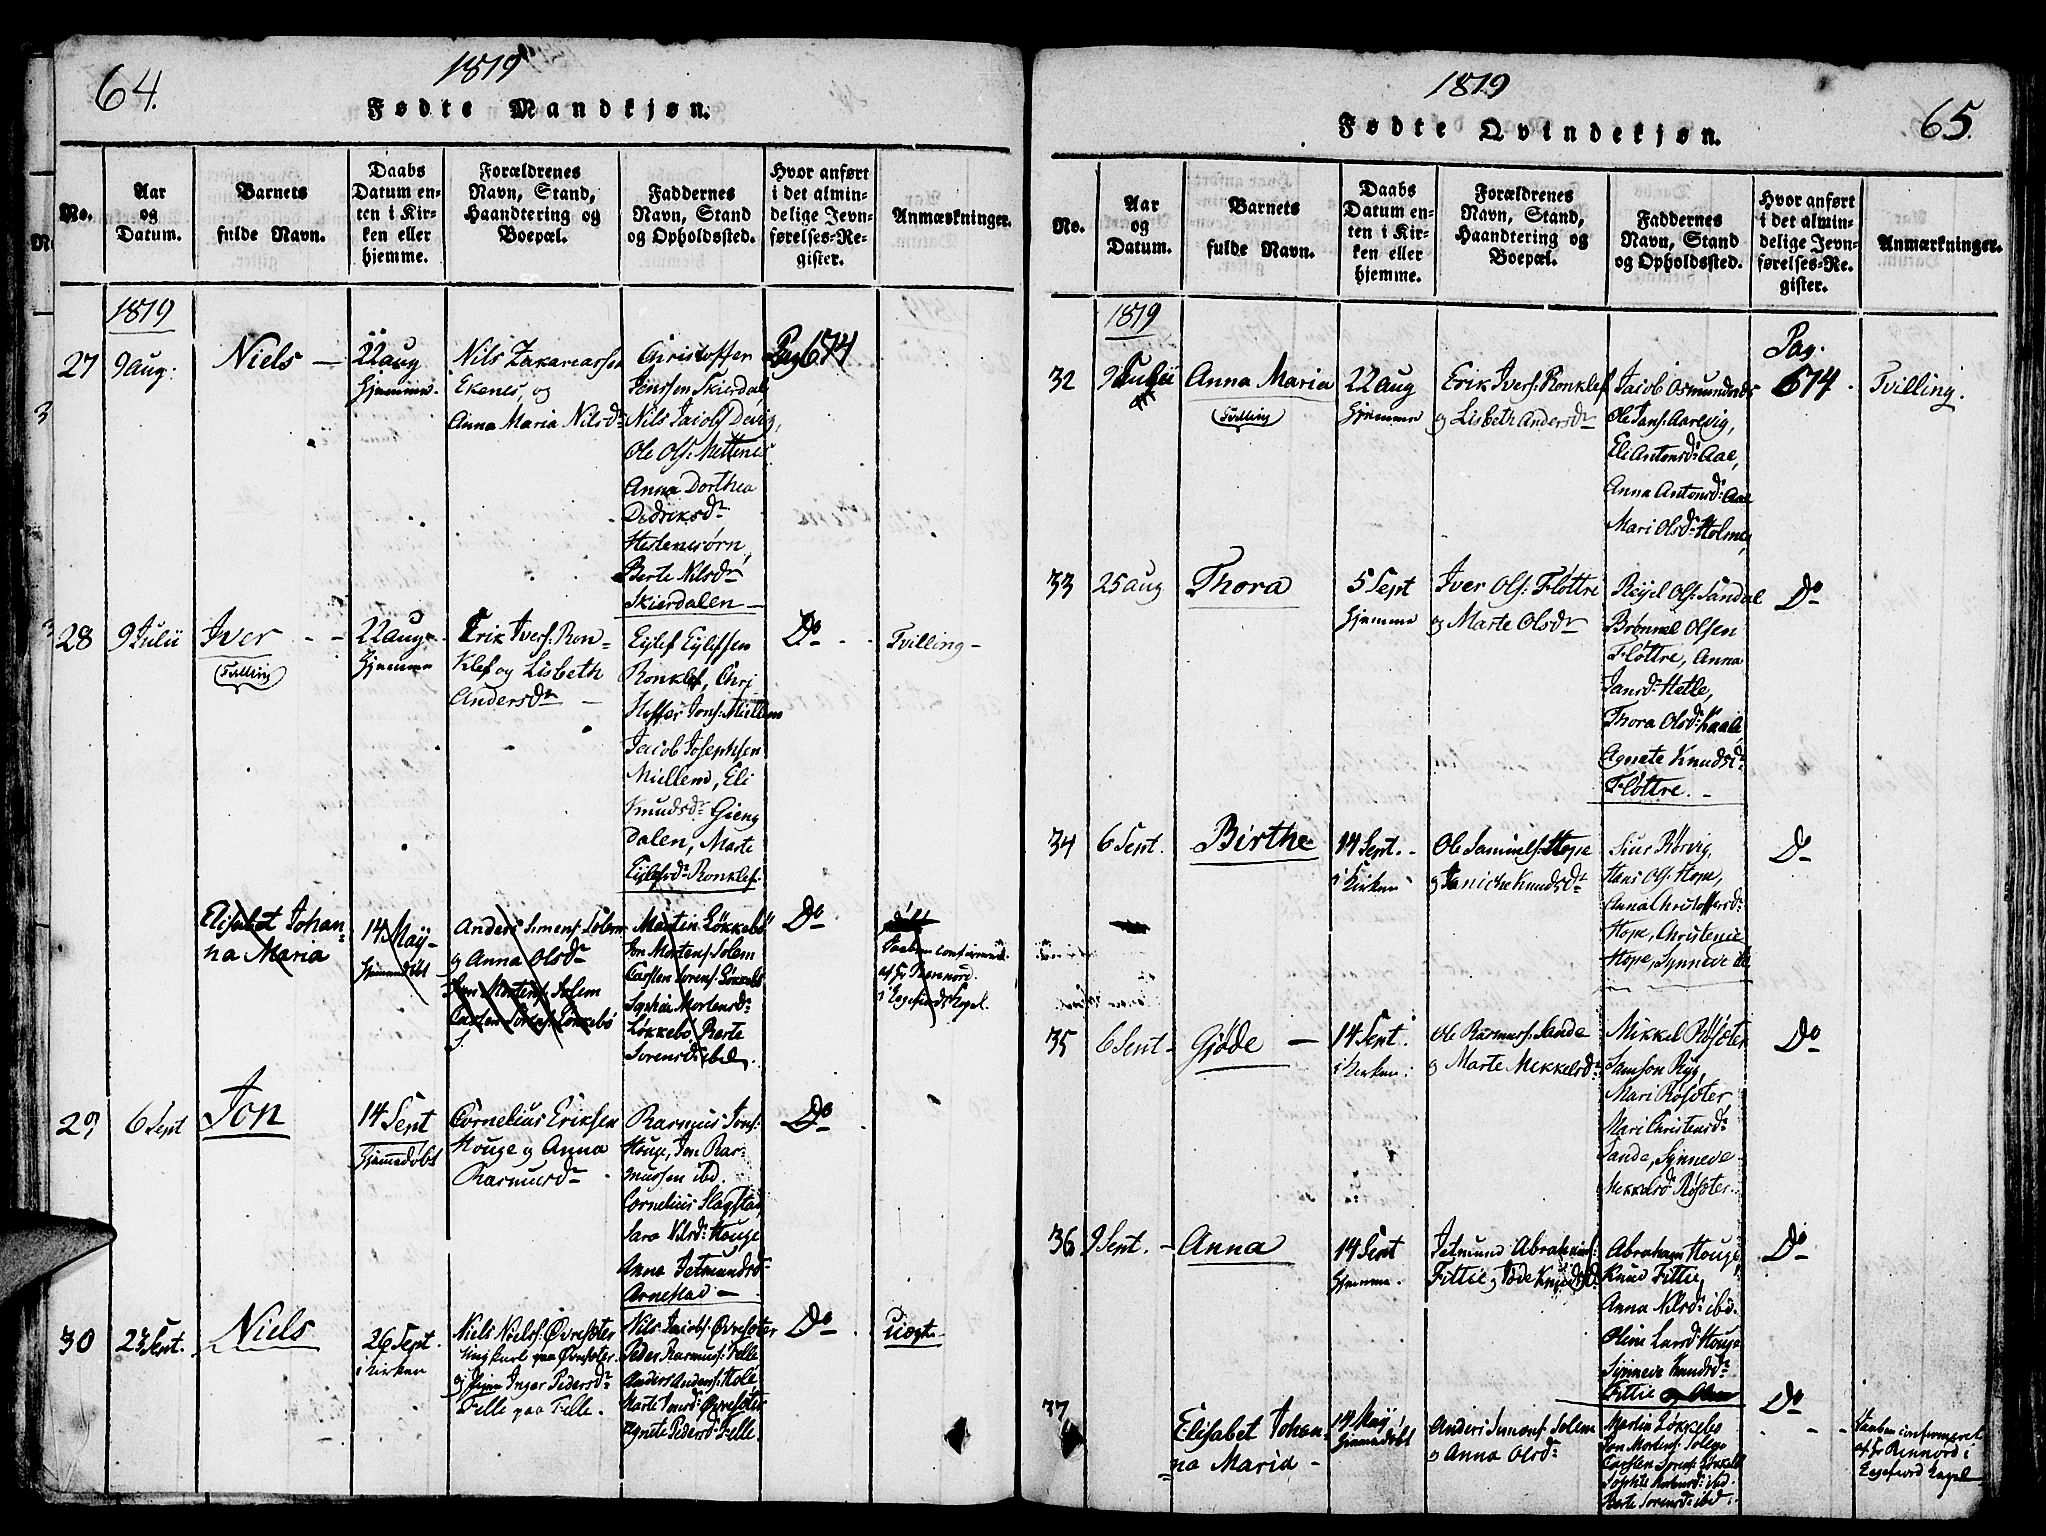 64.
1819
Fødte Mandkjøn.
No.
Aar
og
Datum.
Barnets
fulde Navn.
Daabs
Datum en-
ten i Kir-
ken eller
hjemme.
Forældrenes
Navn, Stand,
Haandtering og
Boepæl.
Faddernes
Navn, Stand
og Opholdssted.
Hvor anført
i det almin-
delige Jevn-
førelses-Re-
gister.
Anmærkninger.
1819
27
9 aug:
Niels
22 aug
Hjemme.
Nils Zakariassen
Ekenes, og
Anna Maria Nilsdr
Christoffer
Jenssen Skierdal,
Nils Jacobs
Ole Ols:
Anna Dorthea
Didriksdr
Berte Nilsdr
Skierdalen
Pag 674
28
9 Julii
Iver
(Tvilling)
22 aug
Hjemme
Erik Ivers: Ron-
klef og Lisbeth
Andersdr
Eylef Eylefsen
Ronklef, Chri
Jons: Miellem
Jacob Josephsen
Miellem, Eli
Knudsdr Gieng
dalen, Marte
Eylefsdr Ronklef.
Do
Tvilling
Elisabet Johan-
na Maria
14 Maÿ
Hjemmedøbt
Anders Simens: Solem
og Anna Olsdr
Jon Mortens: Solem
Carsten Sørens: Løkkebö
Martin Løkkebö
Jon Mortens: Solem
Carsten Sorens: Løkkebö
Sophie Mortensd:
Løkkebö Berte
Sorensd: ibd.
Do
Daaben confirmered
af Hr
i
29
6 Sept
Jon
14 Sept
Hjemmedøbt
Cornelius Eriksen
Houge og Anna
Rasmusdr
Rasmus Jons:
Houge, Jon Ras-
mussen ibd.
Cornelius Slagstad
Sara Nilsd: Houge
Anna Jetmundsdr
Arnestad
Do
30
23 Sept.
Niels
26 Sept.
i Kirken
Niels Niels: Øvresæter
Ungkarl paa Øvresæter
og Inger Pedersdr
Felle paa Felle.
Nils Jacobs: Øvresæter
Peder Rasmus: Felle
Anders Anders: Hole
Marte Jonsd: Øvresæter
Agnete Pedersd: Felle.
Do
Uægte.
65.
1819
Fødte Qvindekjøn.
No.
Aar
og
Datum.
Barnets
fulde Navn.
Daabs
Datum en-
ten i Kir-
ken eller
hjemme.
Forældrenes
Navn, Stand,
Haandtering og
Boepæl.
Faddernes
Navn, Stand
og Opholdssted.
Hvor anført
i det almin-
delige Jevn-
førelses-Re-
gister.
Anmærkninger.
1819
32
9 Julii
Anna Maria
(Tvilling)
22 aug
Hjemme
Erik Ivers: Ronklef
og Lisbeth Andersdr
Jacob Osmundsds
Ole Jans: Aarlvig,
Eli Antonsd: Aae,
Anna Antonsd: Aae
Mari Olsd: Holme,
Pag.
674.
Tvilling.
33
25 aug
Thora
5 Sept
Hjemme
Iver Ols: Fløttre
og Marte Olsdr
Ols: Sandal
Olsen
Fløttre, Anna
Jansd: Hetle,
Thora Olsd:
Agnete Knudsdr
Fløttre.
Do
34
6 Sept.
Birthe
14 Sept.
i Kirken
Ole Samuels: Hope
og Janiche Knudsdr
Sius Rørvig,
Hans Ols: Hope,
Anna Christoffersdr
Hope, Christense
Hope, Synneve ibd
Do
35
6 Sept
Gjøde
14 Sept.
i Kirken
Ole Rasmus: Sande
og Marte Mekkelsdr
Mikkel Røsæter
Samson Ryg,
Mari Røsæter
Mari Christensdr
Sande, Synneve
Mekkelsd: Røsæter.
Do
36
9 Sept.
Anna
14 Sept
Hjemme.
Jetmund Abrahams:
Fittie og Gøde Knudsd:
Abraham Houge
Knud Fittie,
Anna Nilsd: ibd.
Oline Larsd: Houge
Synneve Knudsdr
Fittie
Do
37
Elisabet Johan-
na Maria
14 Maÿ
Hjemmedøbt
Anders Simons: Solem
og Anna Olsdr
Martin Løkkebö
Jon Mortens: Solem
Carsten Sorens: Løkkeb
Sophie Mortensd: ibd
Berte Sorensd: ibd.
Do
Daaben confirmeret
af Hr Rennord i